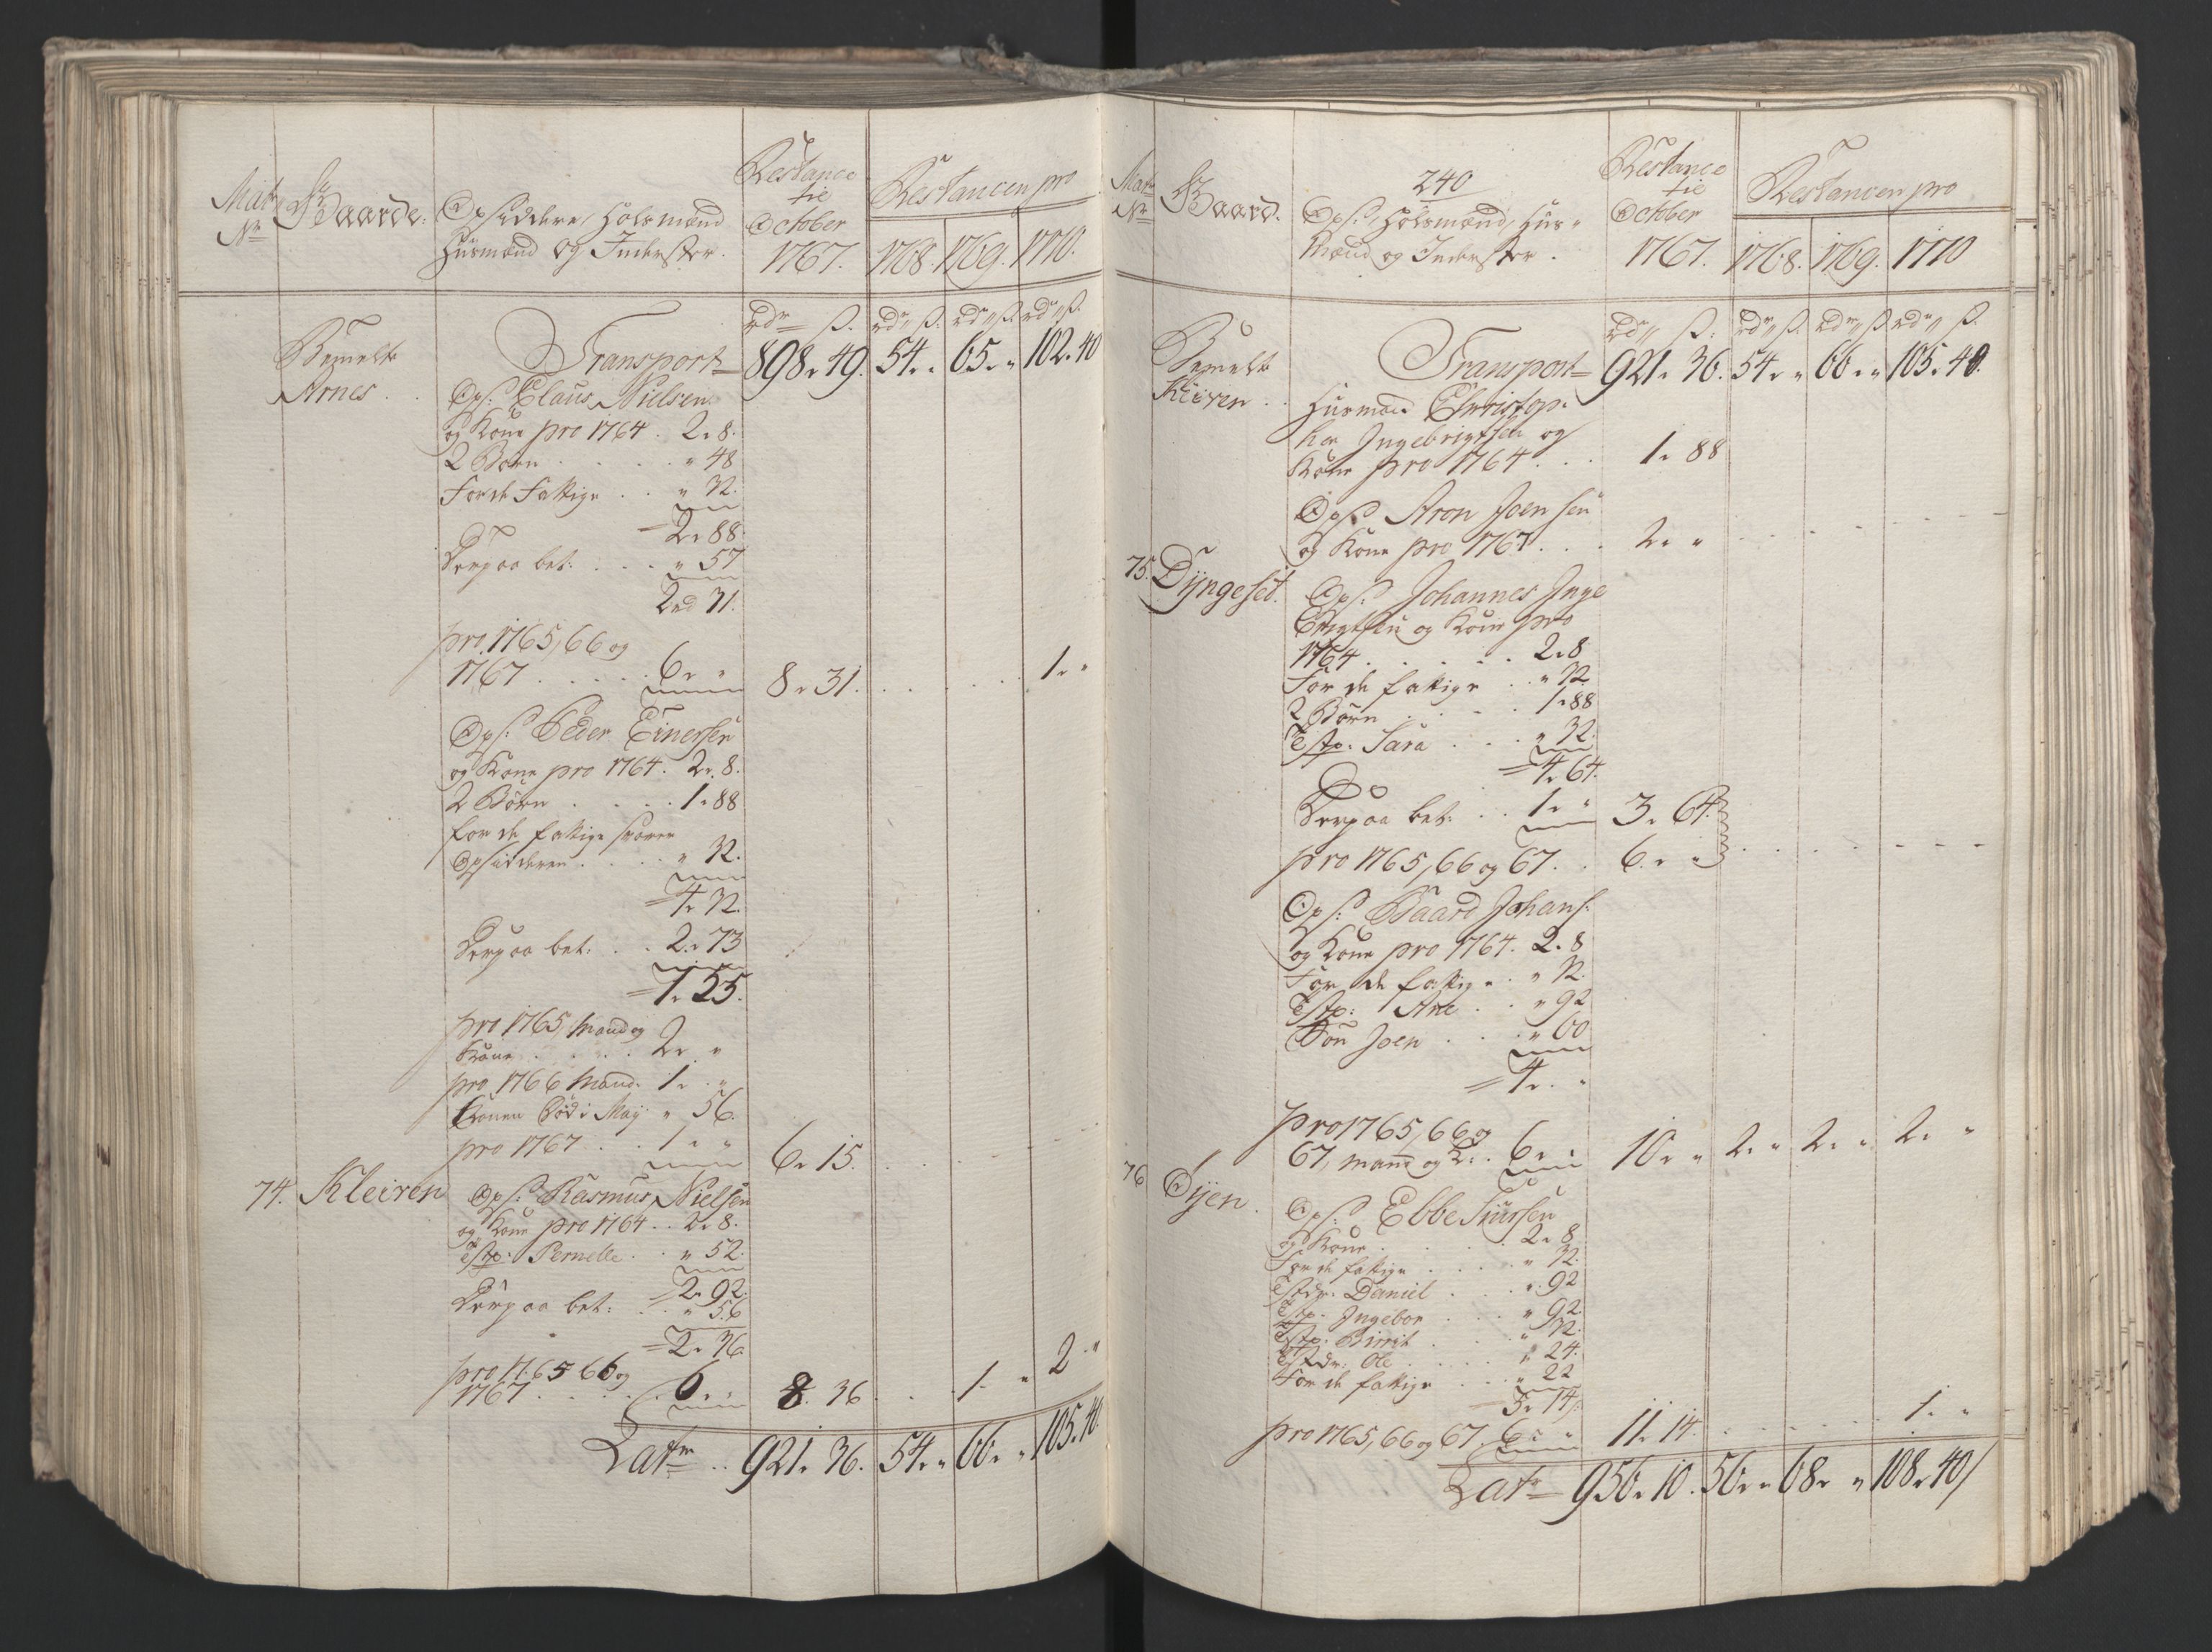 Matr
No
Gaarde:
Opsiddere, Holsmænd
Huusmænd og Inderster.
Restance
til
October
1767.
Restancen pro
1768. 1769. 1770.
rdr ß. rdr ß. rdr ß. rdr ß.
Bemelte
Arnes . .
Transport 898 " 49. 54 " " 65 " " 102 " 40
Ops: Claus Nielsen
og Kone pro 1764 . 2 " 8.
2 Børn . . . . . " 48
For de Fattige . . " 32.
2 " 88.
Derpaa bet: . . . " 57
2 rd 31.
pro 1765, 66 og
1767 . . . . . 6 " " 8 " 31. . . . . . 1 " "
Ops: Peder Einersen
og Kone pro 1764. 2 " 8.
2 Børn . . . . 1 " 88
for de fattige svarer
Opsidderen . . . . " 32.
4 " 32.
Derpaa bet: . . 2 " 73
1 " 55.
pro 1765, Mand og
Kone . . . . 2 " "
pro 1766 Mand. 1 " "
Konen Død i May. " 56.
pro 1767 . . . 1 " " 6 " 15. . . . .
74. Kleiven
Ops: Rasmus Nielsen
og Kone pro 1764 . . 2 " 8.
Tstp: Pernelle . . " 52.
2 " 92.
Derpaa bet: . . " 56
2 " 36
pro 1765 66 og
1767 . . . . . 6 " " 8. 36 . . . 1. " 2 "
Latr . . 921 " 36. 54 " " 66 " " 105 " 40
Matr
No
Gaard.
240
Ops: Holsmænd, Huus-
Mænd og Inderster.
Restance
til
October
1767.
Restancen pro
1768. 1769. 1770
rdr ß. rdr ß. rdr ß. rdr ß.
Bemelte
Kleiven . .
Transport 921 " 36. 54 " " 66 " " 105 " 40.
Huusmand Christop-
her Ingebrigtsen og
Kone pro 1764 . . . 1 " 88
Ops: Aron Joensen
og Kone pro 1767 . . . 2 " " . . . . . .
75. Dyngeset.
Ops: Johannes Inge
Brigtsen og Kone pro
1764 . . . . . . 2 " 8
For de fattige . . " 32
2 Børn . . . . . 1 " 88
Tstp. Sara . . . " 32.
4 " 64.
Derpaa bet: . . 1 " " 3 " 64.
pro 1765, 66 og 67. . 6 " " . . . . . . .
Ops: Baard Johans:
og Kone pro 1764. 2 " 8
For de fattige . " 32.
Tstp: Ane . . . " 92
Søn Joen . . . " 60
4 " "
Pro 1765, 66 og
67, Mand og K: . 6 " " 10 " " 2 " " 2 " " 2 " "
76 Øyen.
Ops: Ebbe Siursen
og Kone . . . . . 2 " 8
For de fattige . . . . " 32.
Tstdr. Daniel . . . " 92
Tstp. Ingebor . . . " 92.
Tstp. Birrit . . . " 32.
Tstdr: Ole . . . . " 24.
For de fattige . . . " 22
5 " 14.
pro 1765, 66 og 67, 6 " " 11 " 14. . . . . . . 1 " "
Latr 956 " 10. 56 " " 68 " " 108 " 40